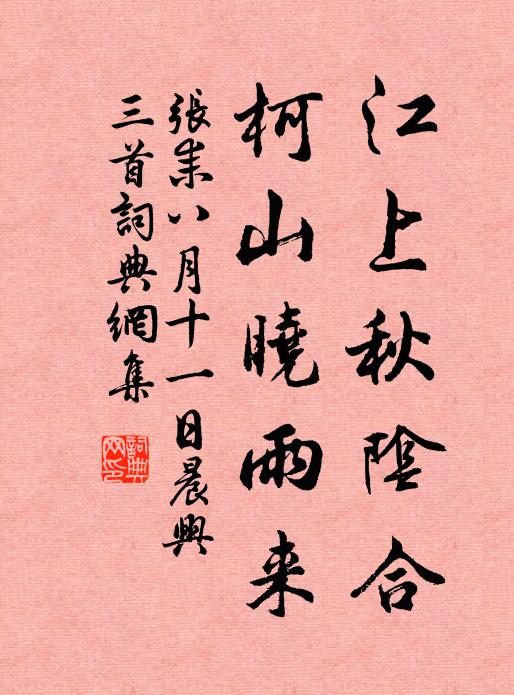 江上秋陰合
柯山曉雨来
張耒八月十一日晨興
三首詞典網集
詞典网印